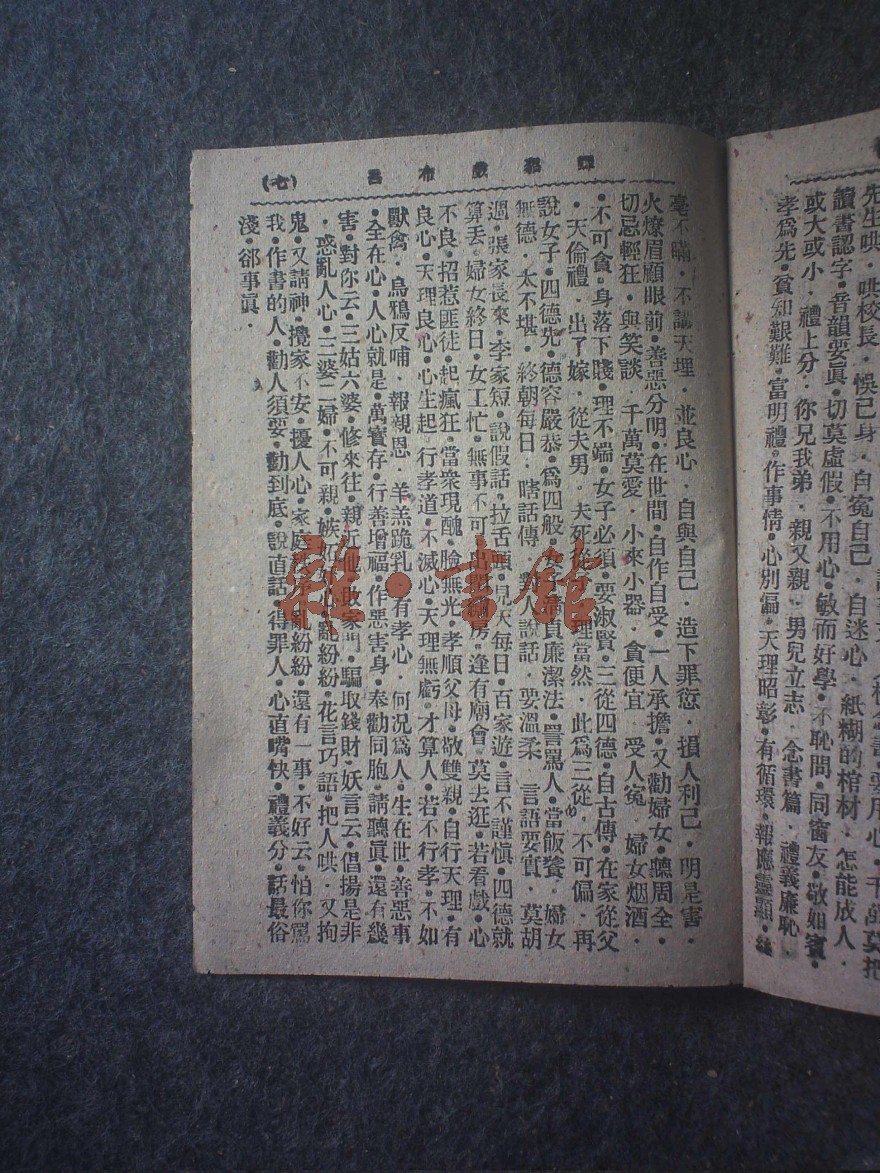 先生哄．哄校長．悞己身．自寃自己．自迷心．紙糊的棺材．怎能成人．
讀書認字●音韻要眞●切莫虛假●不用心●敏而好學●不恥問●同窗友●敬如賓●
或大或小．禮上分．你兄我弟．親又親．男兒立志．念書篇．禮義廉恥．
孝爲先●貧知艱難●富明禮●作事情●心別偏●天理昭彰●有循環●報應靈顯●
呂布戲貂蟬
(七)
毫不嘯．不講天理．並良心．自與自己．造下罪愆．損人利己．明是害．
火燎眉顧眼前●善惡分明●在世間●自作自受●一人承擔●又勸婦女●聽周全●
切忌輕狂．與笑談．千萬莫愛．小來小器．貪便宜．受人寃．婦女烟酒．
●不可貪●身落下賤●理不端●女子必須●要淑賢●三從四德●自古傳●在家從父
．天倫禮．出了嫁．從夫男．夫死從　理當然．此爲三從．不可偏．再
說女子●四德先●德容嚴恭●爲四般●女子　貞廉潔法●詈罵人●當飯餐●婦女
無德．太不堪．終朝每日．瞎話傳．對人說話．要溫柔．言語要實．莫胡
週●張家長來●李家短●說假話●拉舌頭●見天每日●百家遊●言不謹愼●四德就
算丟．婦女終日．女工忙．無事不可　出　房．逢有廟會．莫去逛．若看戲．心
不良●招惹匪徒●起瘋狂●當衆現醜●臉無光●孝順父母●敬雙親●自行天理●有
良心●天理良心●心生起●行孝道●不滅心●天理無虧●才算人●若不行孝●不如
獸禽．烏鴉反哺．報親恩．羊羔跪乳．有孝心．何況爲人．生在世．善惡事
●全在心●人心就是●萬寳存●行善增福●作惡害身●奉勸同胞●請聽眞●還有幾
害．對你云．三姑六婆．修來往．親近他．敗家門．騙取錢財．妖言云．倡揚是非
．惑亂人心●三婆二婦●不可親●嫉妬　心●亂紛紛●花言巧語●把人哄．又拘
鬼．又請神．攪家不安．擾人心．家庭　亂紛紛．還有一事．不好云．怕你罵
我●作書的人●勸人須要●勸到底●說直話●得罪人●心直嘴快●禮義分●話最俗
淺．郤事眞．
雜·書館